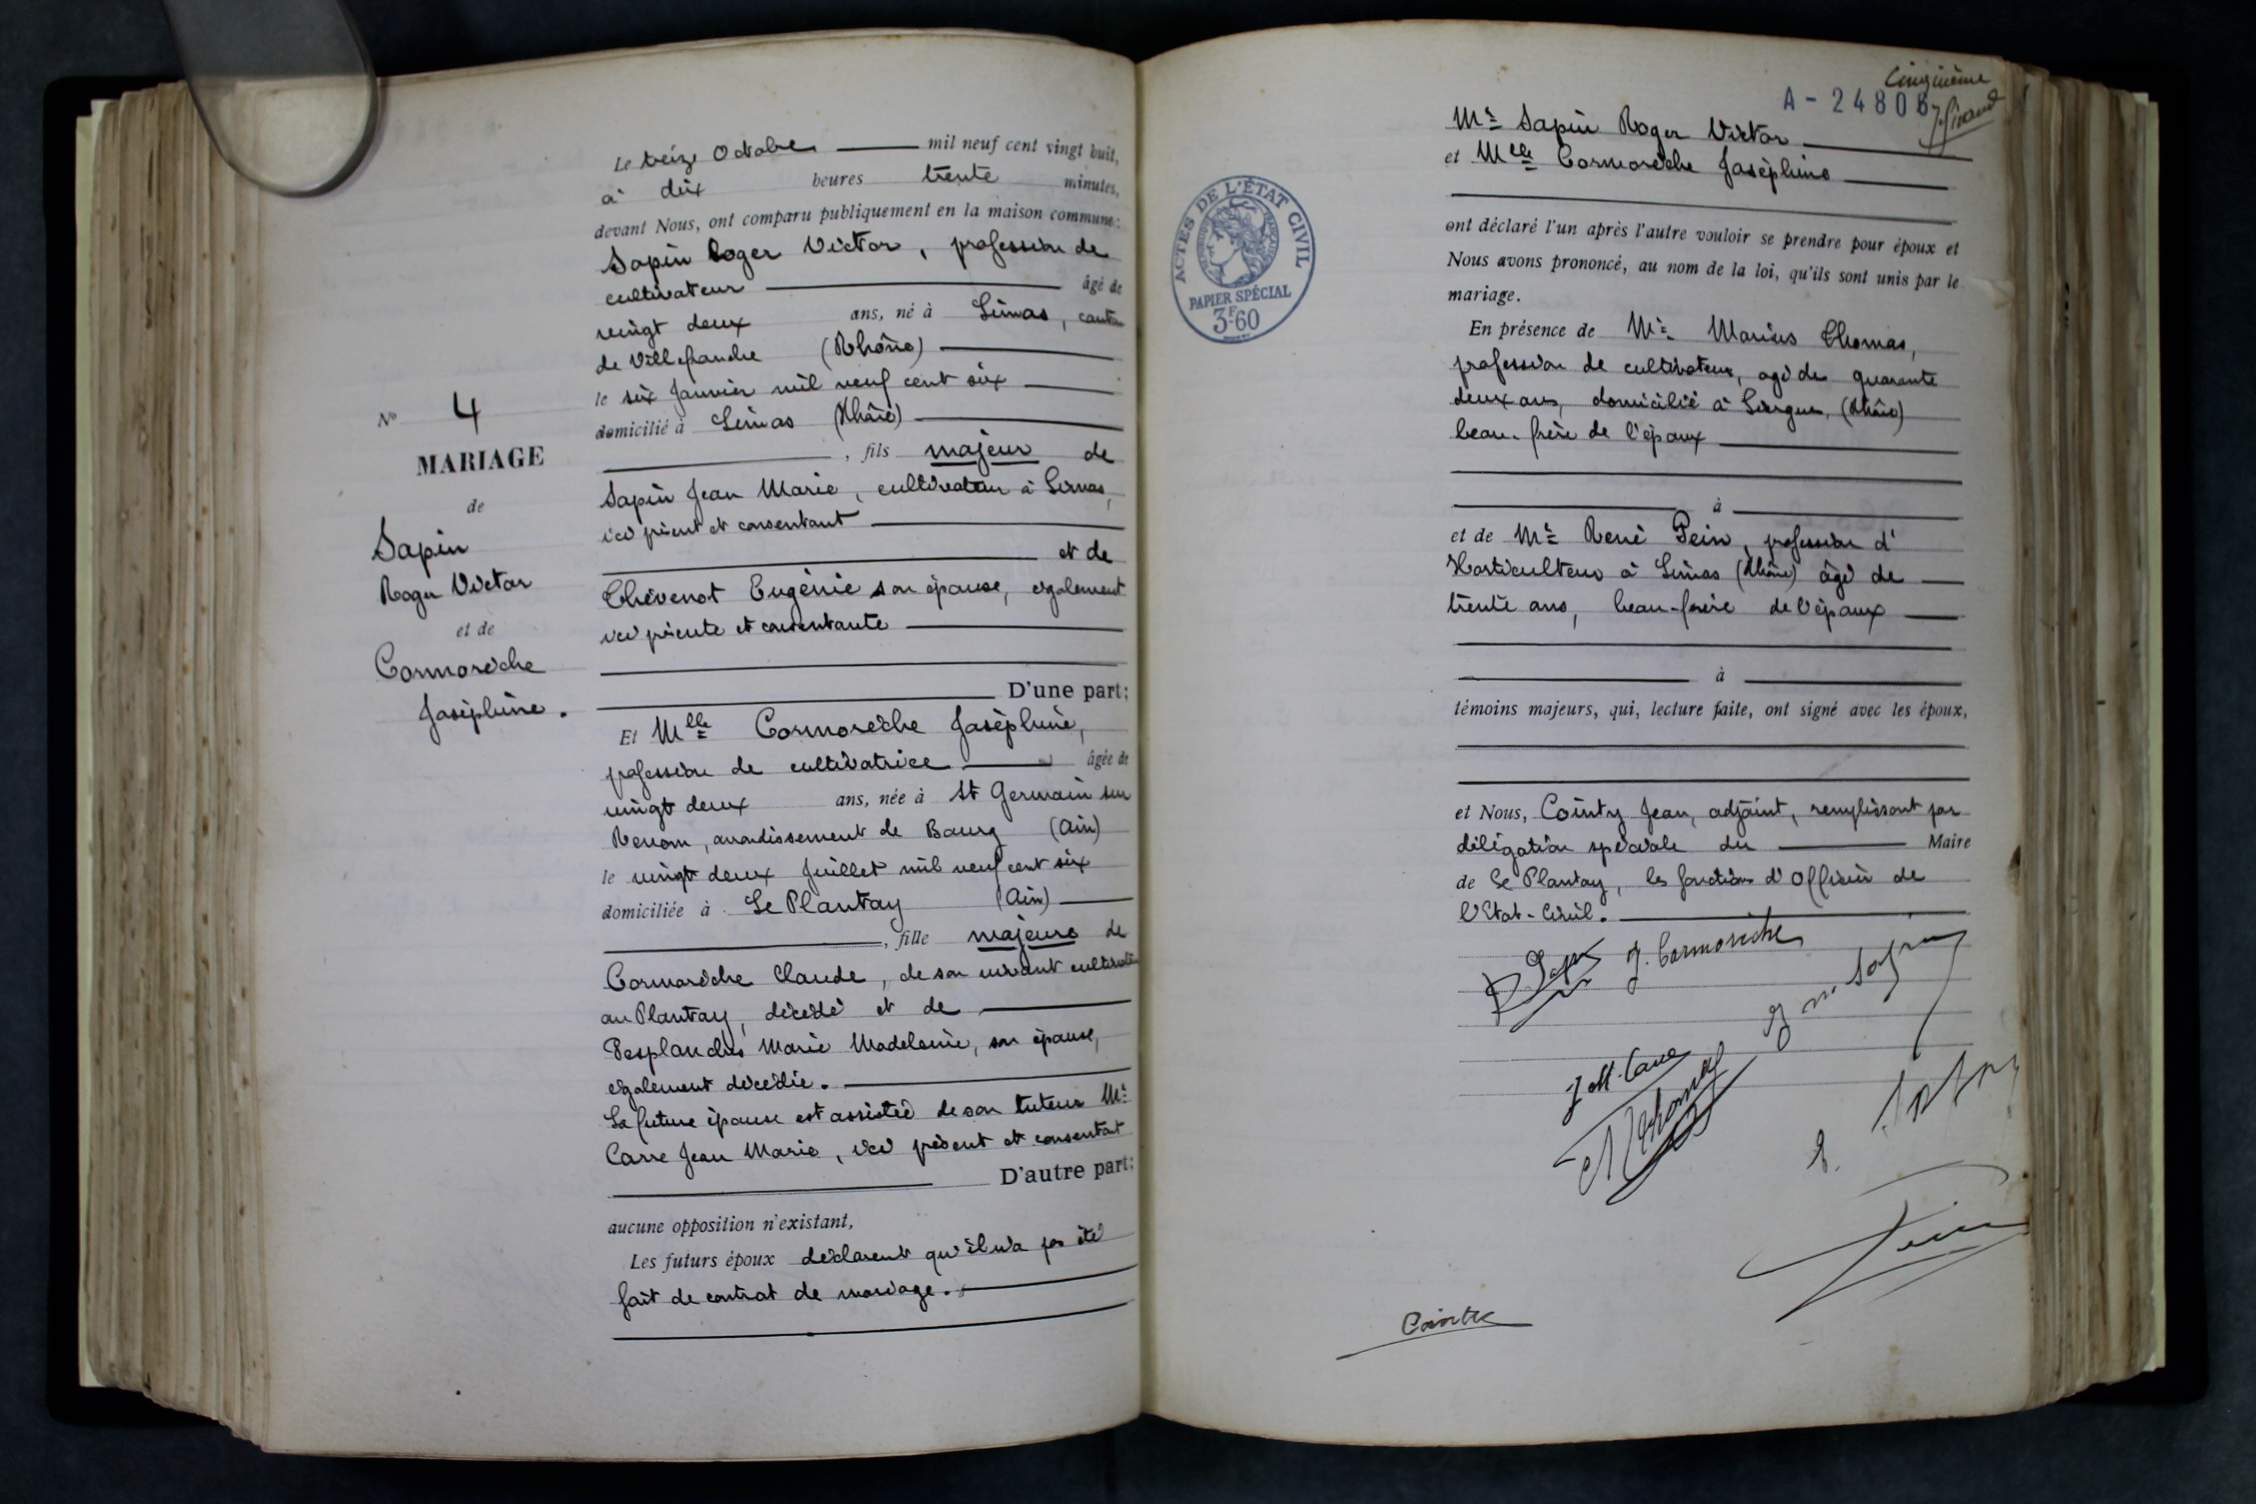 Le treize Octobre mil neuf cent vingt huit,
à dix heures trente minutes,
devant Nous, ont comparu publiquement en la maison commune:
Sapin Roger Victor, profession de
cultivateur âgé de
vingt deux ans, né à Limas, canton
de Villefranche (Rhône)
le six Janvier mil neuf cent six
domicilié à Limas (Rhône)
, fils majeur de
Sapin Jean Marie, cultivateur à Limas,
ici présent et consentant
et de
Thévenot Eugénie son épouse, également
ici présente et consentante
D'une part;
Et Mlle Cormorèche Joséphine,
profession de cultivatrice âgée de
vingt deux ans, née à St Germain sur
Renom, arrondissement de Bourg (Ain)
le vingt deux Juillet mil neuf cent six
domiciliée à Le Plantay (Ain)
, fille majeure de
Cormorèche Claude, de son vivant cultivateur
au Plantay, décédé et de
Desplanches Marie Madeleine, son épouse,
également décédée.
La future épouse est assistée de son tuteur Mr
Carre Jean Marie, ici présent et consentant
D'autre part;
aucune opposition n'existant,
Les futurs époux déclarent qu'il n'a pas été
fait de contrat de mariage.
No 4
MARIAGE
de
Sapin
Roger Victor
et de
Cormorèche
Joséphine.
Cinquième
A-2480B
ACTES DE L'ÉTAT CIVIL
PAPIER SPÉCIAL
3F.60
Mr Sapin Roger Victor
et Melle Cormorèche Joséphine
ont déclaré l'un après l'autre vouloir se prendre pour époux et
Nous avons prononcé, au nom de la loi, qu'ils sont unis par le
mariage.
En présence de Mr Marius Thomas,
profession de cultivateur, agé de quarante
deux ans, domicilié à (Rhône)
beau-frère de l'époux
à
et de Mr René Pein, profession d'
Horticulteur à Limas (Rhône) âgé de
trente ans, beau-frère de l'époux
à
témoins majeurs, qui, lecture faite, ont signé avec les époux,
et Nous, Cointy Jean, adjoint, remplissant par
délégation spéciale du Maire
de Le Plantay, les fonctions d'Officier de
l'Etat-Civil.
R Sapin J. Cormorèche
J M Sapin
J M. Carre
M Thomas
E. Sapin
Pein
Cointy